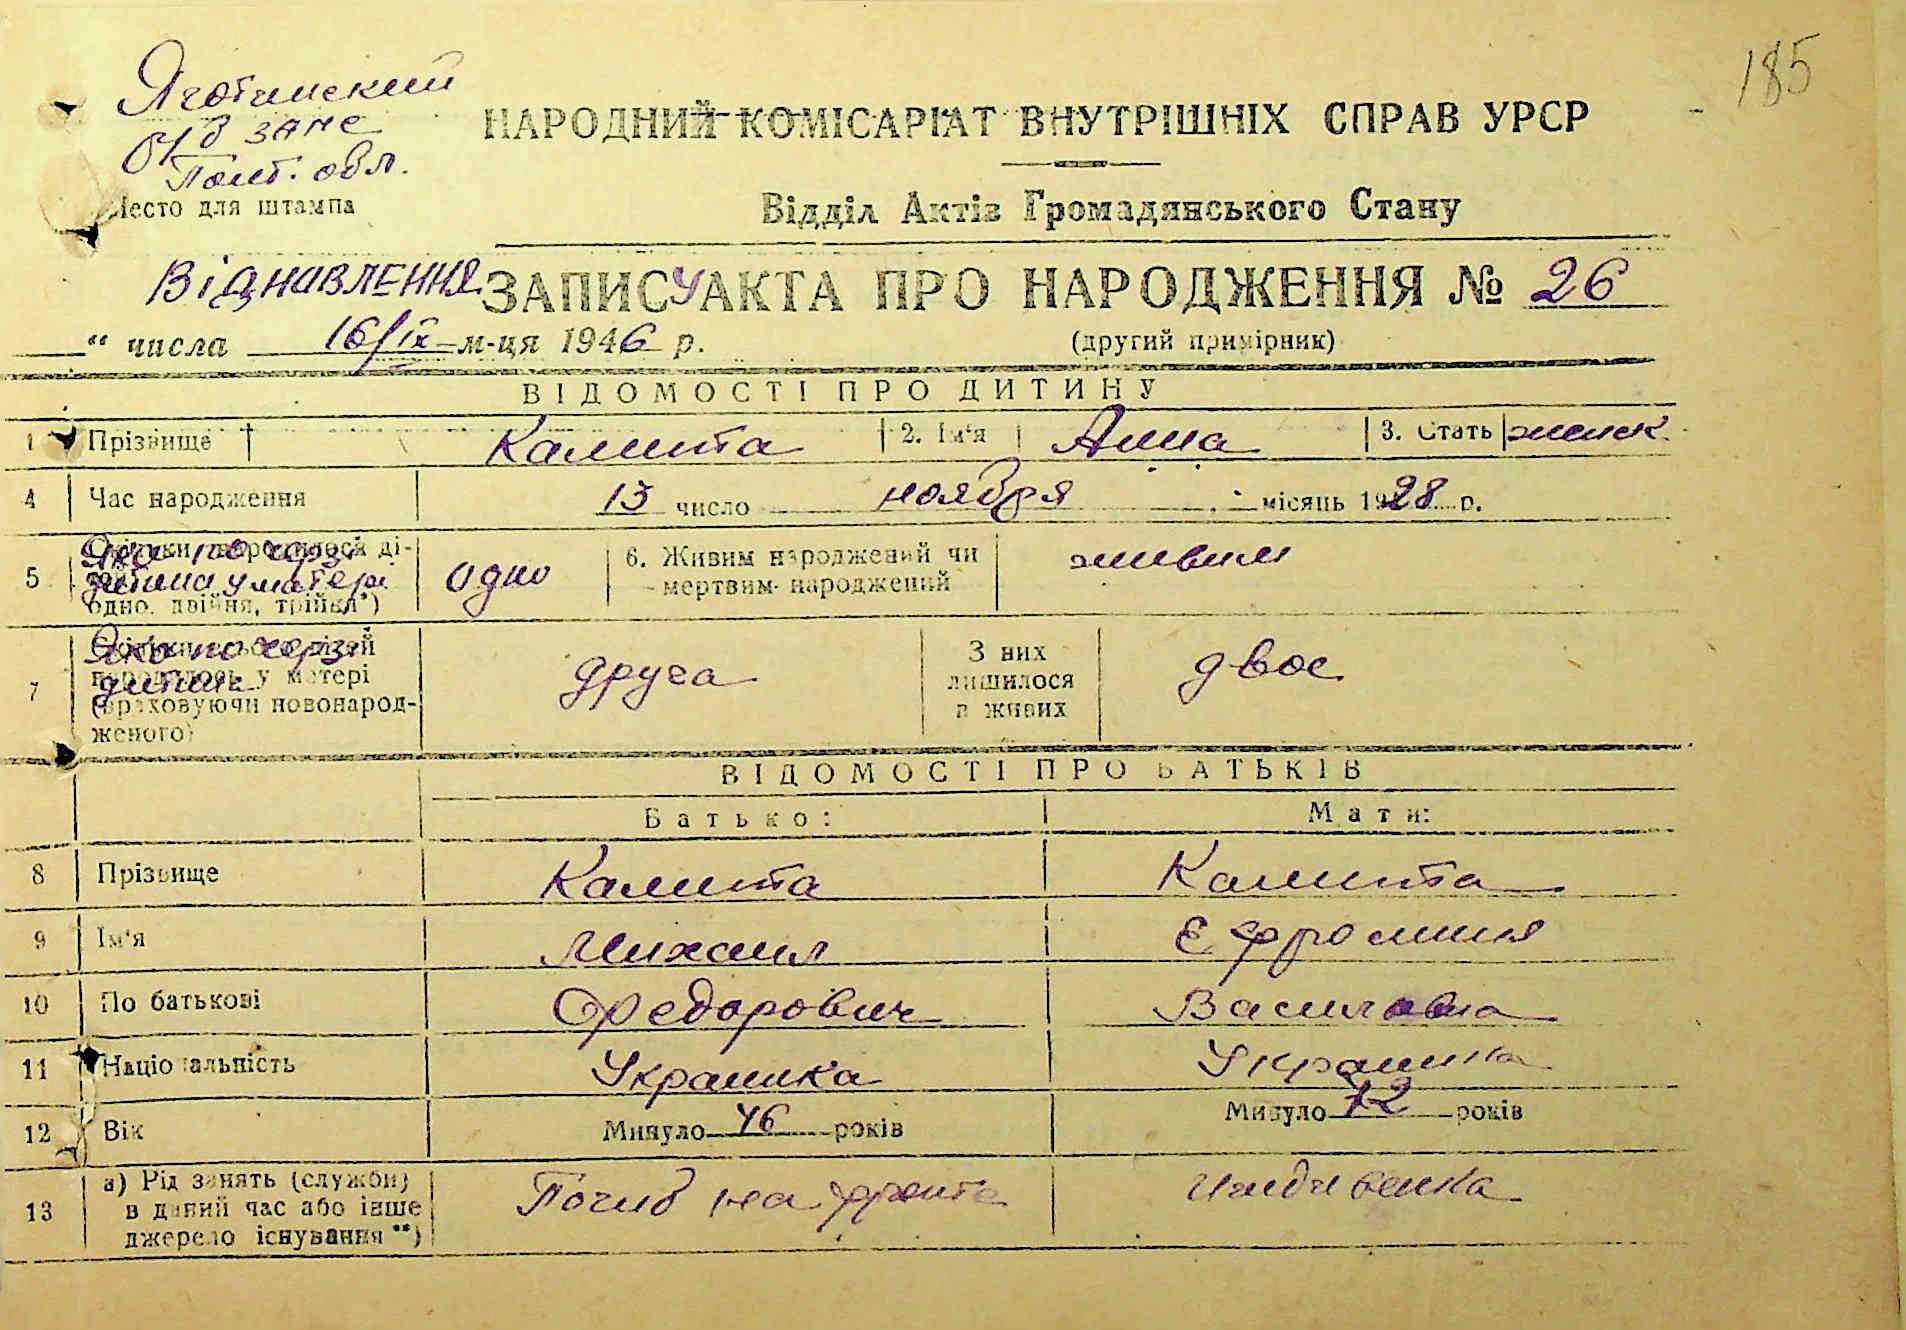 185
Яготинский
о/б ЗАГС
Полт. обл.
Место для штампа
НАРОДНИЙ КОМІСАРІАТ ВНУТРІШНІХ СПРАВ УРСР
Відділ Актів Громадянського Стану
ВіДНАВЛЕННЯ ЗАПИСУ АКТА ПРО НАРОДЖЕННЯ № 26
“ числа 16/ІХ м-ця 1946 р. (другий примірник)
ВІДОМОСТІ ПРО ДИТИНУ
1 Прізвище Калита 2. Ім‘я Анна 3. Стать женск.
4 Час народження 13 число ноября місяць 1928 р.
5 Яка по черзі дитина у матері одно, двійня, трійня*) одно 6. Живим народжений чи мертвим народжений живим
7 Яка по черзі дитина народилось у матері (враховуючи новонародженого) друга З них лишилося в живих двое
ВІДОМОСТІ ПРО БАТЬКІВ
Батько: Мати:
8 Прізвище Калита Калита
9 Ім‘я Михаил Єфросиния
10 По батькові Федорович Василовна
11 Національність Украинка Украинка
12 Вік Минуло 46 років Минуло 42 років
13 а) Рід занять (служби) Погиб на фронте
в даний час або інше
джерело існування **)